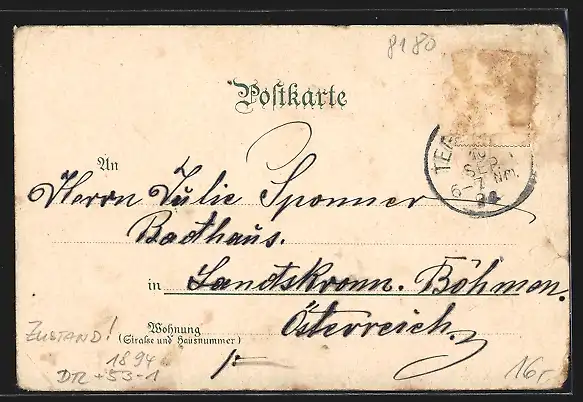 8180
Postkarte
An
Herrn Julie Sponner
Badhaus.
in Landskronn. Böhmen.
Österreich.
Wohnung
(Straße und Hausnummer)
6-7 Nm.
ZUSTAND!
1894
DR +53-1
1.-
16,-